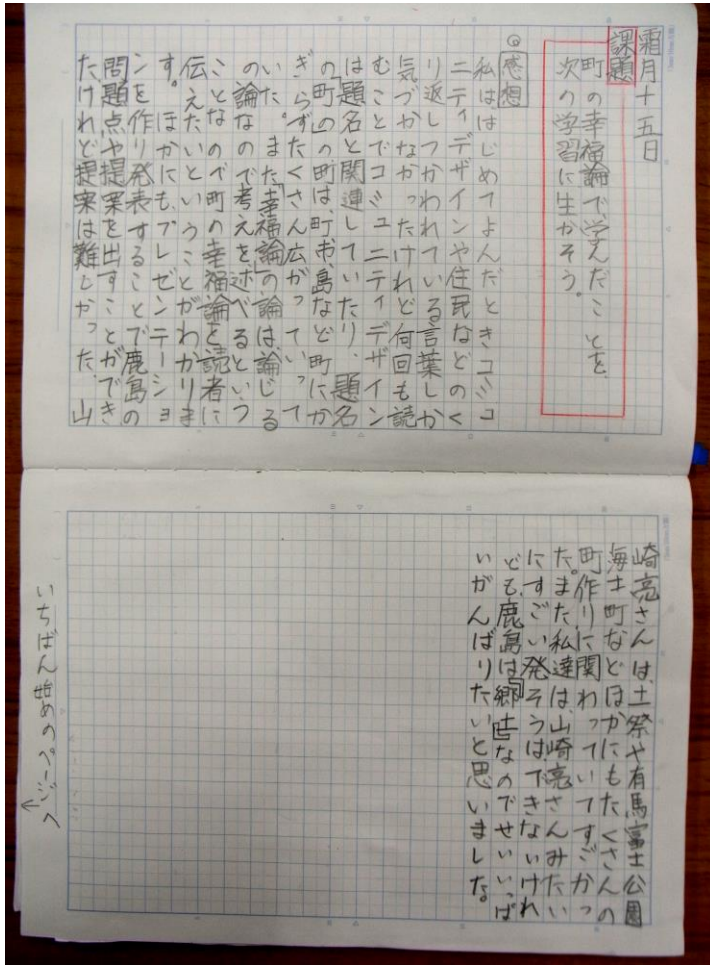 霜月十五日
課題
町の幸福論で学んだことを、
次の学習に生かそう。
感想
私ははじめてよんだときコミュ
ニティデザインや住民などのく
り返しつかわれている言葉しか
気づかなかったけれど何回も読
むことでコミュニティデザイン
は題名と関連していたり、題名
の「町の」の町は、町、市、島など町にか
ぎらずたくさん広がっていって
いた。また、「幸福論」の論は、論じる
の論なので考えを述べるという
ことなので町の幸福論を読者に
伝えたいということがわかりま
す。ほかにも、プレゼンテーショ
ンを作り発表することで鹿島の
問題点や提案を出すことができ
たけれど提案は難しかった。山
崎亮さんは、土祭や有馬富士公園
海士町などほかにもたくさんの
町作りに関わっていてすごかっ
た。また、私達は、山崎亮さんみたい
にすごい発そうはできないけれ
ども、鹿島は「郷土」なのでせいいっぱ
いがんばりたいと思いました。
いちばん始めのページへ